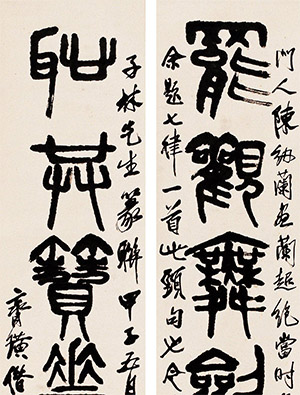 門人陳紉蘭畫蘭超絕當時
罷觀舞劍
余題七律一首此頸句也今
子林先生篆聯甲子五月
耻共簪
齊璜借